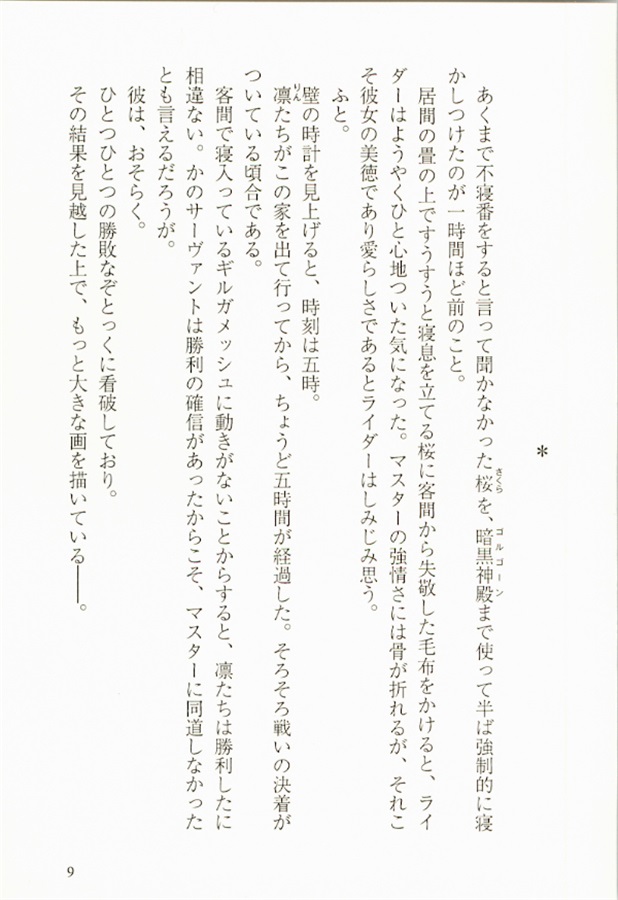 *
あくまで不寝番をすると言って聞かなかった桜を、暗黒神殿まで使って半ば強制的に寝
さくら
ゴルゴーン
かしつけたのが一時間ほど前のこと。
居間の畳の上ですうすうと寝息を立てる桜に客間から失敬した毛布をかけると、ライ
ダーはようやくひと心地ついた気になった。マスターの強情さには骨が折れるが、それこ
そ彼女の美徳であり愛らしさであるとライダーはしみじみ思う。
ふと。
壁の時計を見上げると、時刻は五時。
凛たちがこの家を出て行ってから、ちょうど五時間が経過した。そろそろ戦いの決着が
りん
ついている頃合である。
客間で寝入っているギルガメッシュに動きがないことからすると、凛たちは勝利したに
相違ない。かのサーヴァントは勝利の確信があったからこそ、マスターに同道しなかった
とも言えるだろうが。
彼は、おそらく。
ひとつひとつの勝敗なぞとっくに看破しており。
その結果を見越した上で、もっと大きな画を描いている――。
9